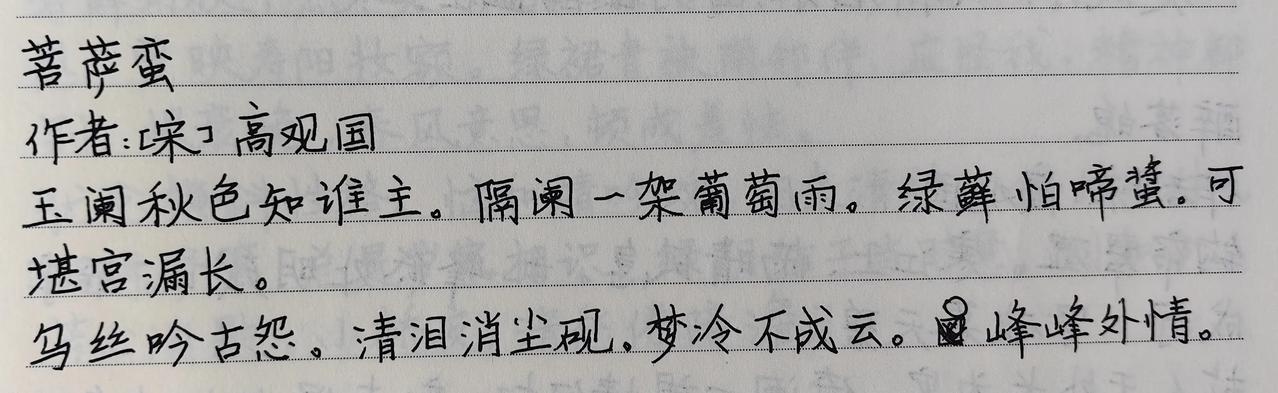 菩萨蛮
作者:[宋]高观国
玉阑秋色知谁主。隔阑一架葡萄雨。绿藓怕啼螀。可
堪宫漏长。
乌丝吟古怨。清泪消尘砚。梦冷不成云。峰峰外情。